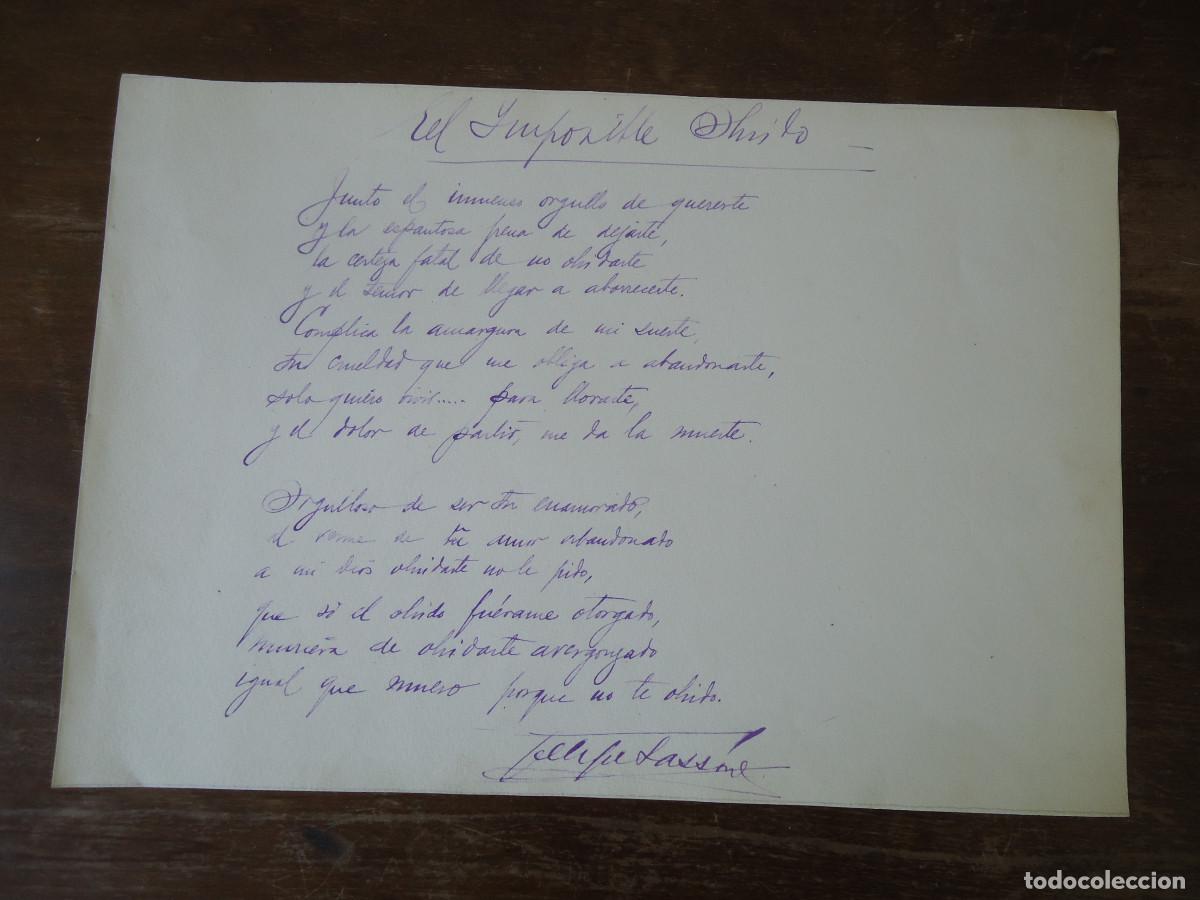 El Imposible Olvido
Junto el inmenso orgullo de quererte
y la espantosa pena de dejarte,
la certeza fatal de no olvidarte
y el temor de llegar a aborrecerte.
Complica la amargura de mi suerte,
tu crueldad que me obliga a abandonarte,
solo quiero vivir..... para llorarte,
y el dolor de partir, me da la muerte.
Orgulloso de ser tu enamorado,
al verme de tu amor abandonado
a mi Dios olvidarte no le pido,
que si el olvido fuérame otorgado,
muriera de olvidarte avergonzado
igual que muero porque no te olvido.
Felipe Sassone
todocoleccion